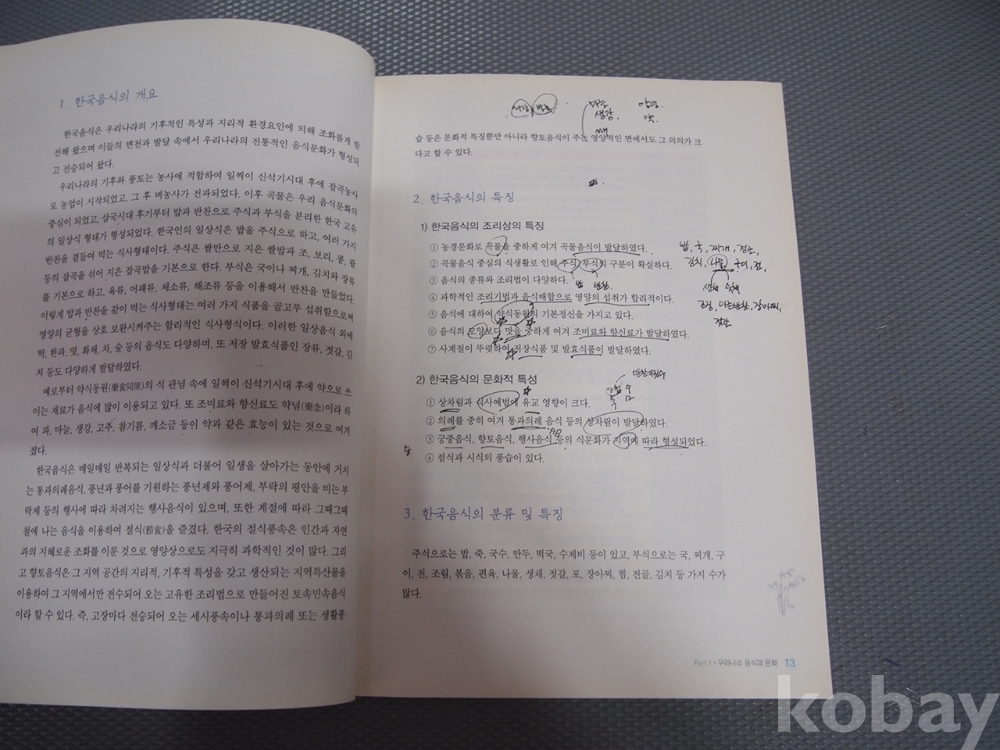 1. 한국음식의 개요
한국음식은 우리나라의 기후적인 특성과 지리적 환경요인에 의해 조화롭게 발
전해 왔으며 이들의 변천과 발달 속에서 우리나라의 전통적인 음식문화가 형성되
고 전승되어 왔다.
우리나라의 기후와 풍토는 농사에 적합하여 일찍이 신석기시대 후에 잡곡농사
로 농업이 시작되었고, 그 후 벼농사가 전파되었다. 이후 곡물은 우리 음식문화의
중심이 되었고, 삼국시대 후기부터 밥과 반찬으로 주식과 부식을 분리한 한국 고유
의 일상식 형태가 형성되었다. 한국인의 일상식은 밥을 주식으로 하고, 여러 가지
반찬을 곁들여 먹는 식사형태이다. 주식은 쌀만으로 지은 쌀밥과 조, 보리, 콩, 팥
등의 잡곡을 섞어 지은 잡곡밥을 기본으로 한다. 부식은 국이나 찌개, 김치와 장류
를 기본으로 하고, 육류, 어패류, 채소류, 해조류 등을 이용해서 반찬을 만들었다.
이렇게 밥과 반찬을 같이 먹는 식사형태는 여러 가지 식품을 골고루 섭취함으로써
영양의 균형을 상호 보완시켜주는 합리적인 식사형식이다. 이러한 일상음식 외에
떡, 한과, 엿, 화채, 차, 술 등의 음식도 다양하며, 또 저장 발효식품인 장류, 젓갈, 김
치 등도 다양하게 발달하였다.
예로부터 약식동원(藥食同原)의 식 관념 속에 일찍이 신석기시대 후에 약으로 쓰
이는 재료가 음식에 많이 이용되고 있다. 또 조미료와 향신료도 약념(藥念)이라 하
여 파, 마늘, 생강, 고추, 참기름, 깨소금 등이 약과 같은 효능이 있는 것으로 여겨
졌다.
한국음식은 매일매일 반복되는 일상식과 더불어 일생을 살아가는 동안에 거치
는 통과의례음식, 풍년과 풍어를 기원하는 풍년제와 풍어제, 부락의 평안을 비는 부
락제 등의 행사에 따라 차려지는 행사음식이 있으며, 또한 계절에 따라 그때그때
철에 나는 음식을 이용하여 절식(節食)을 즐겼다. 한국의 절식풍속은 인간과 자연
과의 지혜로운 조화를 이룬 것으로 영양상으로도 지극히 과학적인 것이 많다. 그리
고 향토음식은 그 지역 공간의 지리적, 기후적 특성을 갖고 생산되는 지역특산물을
이용하여 그 지역에서만 전수되어 오는 고유한 조리법으로 만들어진 토속민속음식
이라 할 수 있다. 즉, 고장마다 전승되어 오는 세시풍속이나 통과의례 또는 생활풍
마늘
생강,
깨
양념
약.
습 등은 문화적 특징뿐만 아니라 향토음식이 주는 영양적인 면에서도 그 의의가 크
다고 할 수 있다.
2. 한국음식의 특징
1) 한국음식의 조리상의 특징
① 농경문화로 곡물을 중하게 여겨 곡물음식이 발달하였다.
② 곡물음식 중심의 식생활로 인해 주식 부식의 구분이 확실하다.
밥 반찬
③ 음식의 종류와 조리법이 다양하다.
④ 과학적인 조리기법과 음식배합으로 영양의 섭취가 합리적이다.
⑤ 음식에 대하여 약식동원의 기본정신을 가지고 있다.
⑥ 음식의 모양보다 맛을 중하게 여겨 조미료와 향신료가 발달하였다.
⑦ 사계절이 뚜렷하여 저장식품 및 발효식품이 발달하였다.
밥, 국, 찌개, 전골,
김치, 나물, 구이, 전,
생채 숙채
조림, 마른반찬, 장아찌,
젓갈
2) 한국음식의 문화적 특성
① 상차림과 식사예법에 유교 영향이 크다.
② 의례를 중히 여겨 통과의례 음식 등의 상차림이 발달하였다.
③ 궁중음식, 향토음식, 행사음식 등의 식문화가 지역에 따라 형성되었다.
④ 절식과 시식의 풍습이 있다.
3. 한국음식의 분류 및 특징
주식으로는 밥, 죽, 국수, 만두, 떡국, 수제비 등이 있고, 부식으로는 국, 찌개, 구
이, 전, 조림, 볶음, 편육, 나물, 생채, 젓갈, 포, 장아찌, 찜, 전골, 김치 등 가지 수가
많다.
Part 1 • 우리나라 음식과 문화 13
kobay